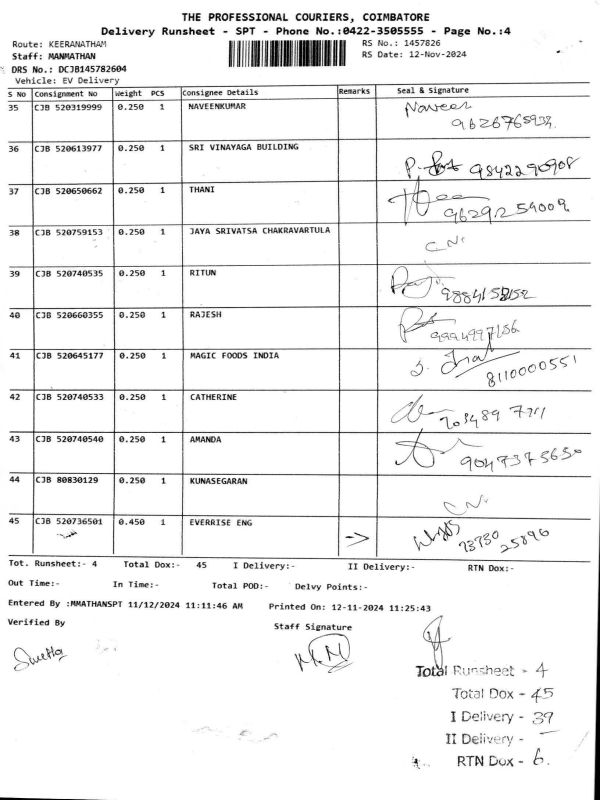 THE PROFESSIONAL COURIERS, COIMBATORE
Delivery Runsheet - SPT - Phone No.:0422-3505555 - Page No.:4
Route: KEERANATHAM RS No.: 1457826
Staff: MANMATHAN RS Date: 12-Nov-2024
DRS No.: DCJB145782604
Vehicle: EV Delivery
S No Consignment No Weight PCS Consignee Details Remarks Seal & Signature
35 CJB 520319999 0.250 1 NAVEENKUMAR Naveen
36 CJB 520613977 0.250 1 SRI VINAYAGA BUILDING 9842290908
37 CJB 520650662 0.250 1 THANI 9629259009
38 CJB 520759153 0.250 1 JAYA SRIVATSA CHAKRAVARTULA C N.
39 CJB 520740535 0.250 1 RITUN
40 CJB 520660355 0.250 1 RAJESH
41 CJB 520645177 0.250 1 MAGIC FOODS INDIA 8110000551
42 CJB 520740533 0.250 1 CATHERINE
43 CJB 520740540 0.250 1 AMANDA 9047375650
44 CJB 80830129 0.250 1 KUNASEGARAN C N.
45 CJB 520736501 0.450 1 EVERRISE ENG -> 73730 25896
Tot. Runsheet:- 4 Total Dox:- 45 I Delivery:- II Delivery:- RTN Dox:-
Out Time:- In Time:- Total POD:- Delvy Points:-
Entered By :MMATHANSPT 11/12/2024 11:11:46 AM Printed On: 12-11-2024 11:25:43
Verified By Staff Signature
Total Runsheet - 4
Total Dox - 45
I Delivery - 39
II Delivery - -
RTN Dox - 6.